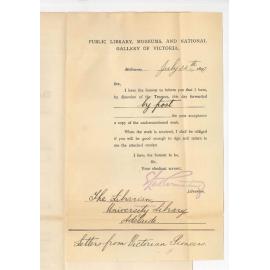 PUBLIC LIBRARY, MUSEUMS, AND NATIONAL
GALLERY OF VICTORIA,
Melbourne, July
Sir,
I have the honour to inform you that I have,
by direction of the Trustees, this day forwarded
by post
for your acceptance
a copy of the undermentioned work.
When the work is received, I shall be obliged
if you will be good enough to sign and return to
me the attached receipt.
I have the honour to be,
Sir,
Your obedient servant,
LIBRARIAN.
The Librarian
University Library
Adelaide
Letters from Victorian Pioneers